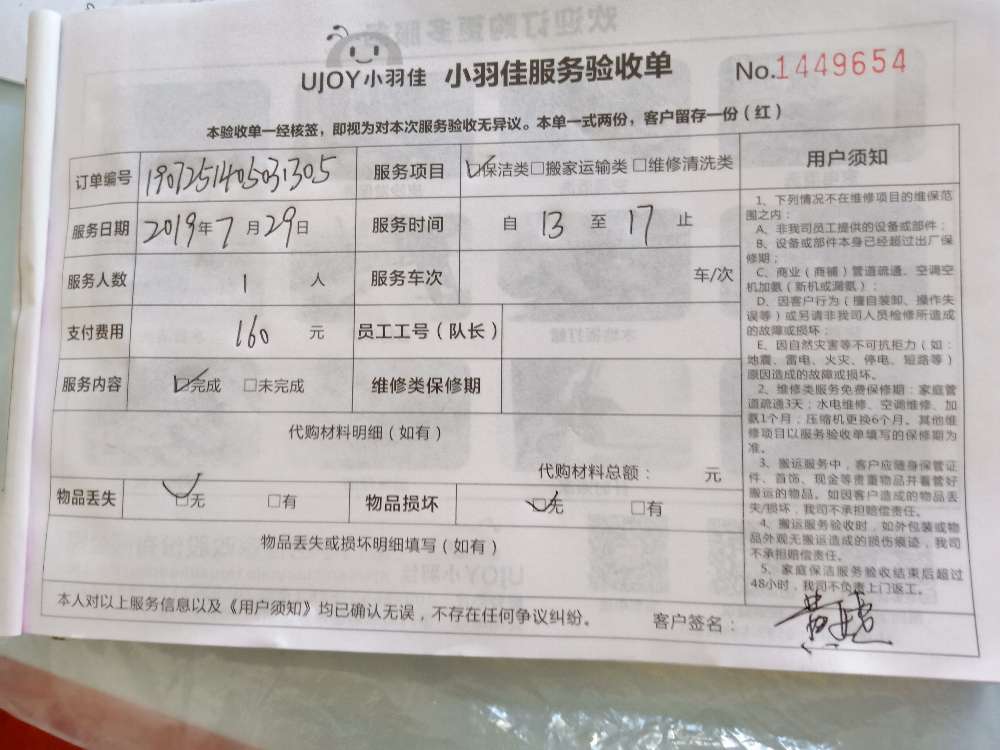 UJOY小羽佳 小羽佳服务验收单 No.1449654
本验收单一经核签，即视为对本次服务验收无异议。本单一式两份，客户留存一份（红）
订单编号 1907251405031305 服务项目 ☑保洁类□搬家运输类□维修清洗类
服务日期 2019年7月29日 服务时间 自 13 至 17 止
服务人数 1 人 服务车次 车/次
支付费用 160 元 员工工号（队长）
服务内容 ☑完成 □未完成 维修类保修期
代购材料明细（如有）
代购材料总额： 元
物品丢失 ☑无 □有 物品损坏 ☑无 □有
物品丢失或损坏明细填写（如有）
用户须知
1、下列情况不在维修项目的维保范
围之内：
A、非我司员工提供的设备或部件；
B、设备或部件本身已经超过出厂保
修期；
C、商业（商铺）管道疏通、空调空
机加氨（新机或漏氨）；
D、因客户行为（擅自装卸、操作失
误等）或另请非我司人员检修所造成
的故障或损坏；
E、因自然灾害等不可抗拒力（如：
地震、雷电、火灾、停电、短路等）
原因造成的故障或损坏。
2、维修类服务免费保修期：家庭管
道疏通3天；水电维修、空调维修、加
氨1个月，压缩机更换6个月。其他维
修项目以服务验收单填写的保修期为
准。
3、搬运服务中，客户应随身保管证
件、首饰、现金等贵重物品并看管好
搬运的物品。如因客户造成的物品丢
失/损坏，我司不承担赔偿责任。
4、搬运服务验收时，如外包装或物
品外观无搬运造成的损伤痕迹，我司
不承担赔偿责任。
5、家庭保洁服务验收结束后超过
48小时，我司不负责上门返工。
本人对以上服务信息以及《用户须知》均已确认无误，不存在任何争议纠纷。 客户签名：